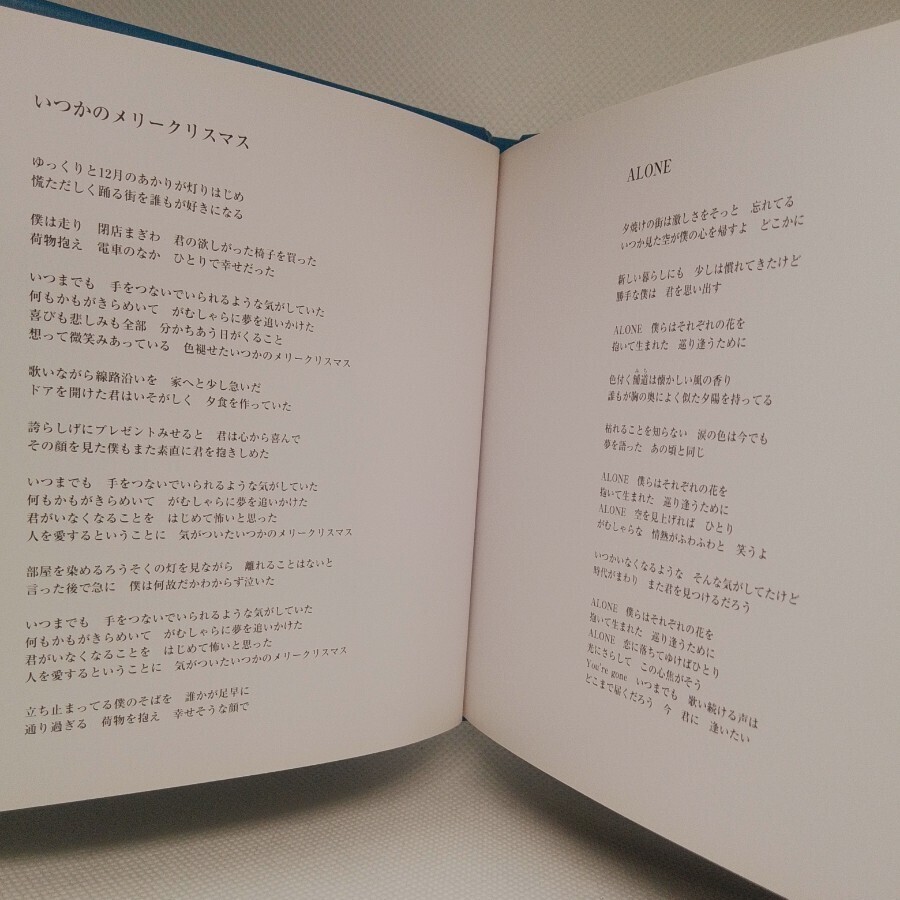 いつかのメリークリスマス
ゆっくりと12月のあかりが灯りはじめ
慌ただしく踊る街を誰もが好きになる
僕は走り　閉店まぎわ　君の欲しがった椅子を買った
荷物抱え　電車のなか　ひとりで幸せだった
いつまでも　手をつないでいられるような気がしていた
何もかもがきらめいて　がむしゃらに夢を追いかけた
喜びも悲しみも全部　分かちあう日がくること
想って微笑みあっている　色褪せたいつかのメリークリスマス
歌いながら線路沿いを　家へと少し急いだ
ドアを開けた君はいそがしく　夕食を作っていた
誇らしげにプレゼントみせると　君は心から喜んで
その顔を見た僕もまた素直に君を抱きしめた
いつまでも　手をつないでいられるような気がしていた
何もかもがきらめいて　がむしゃらに夢を追いかけた
君がいなくなることを　はじめて怖いと思った
人を愛するということに　気がついたいつかのメリークリスマス
部屋を染めるろうそくの灯を見ながら　離れることはないと
言った後で急に　僕は何故だかわからず泣いた
いつまでも　手をつないでいられるような気がしていた
何もかもがきらめいて　がむしゃらに夢を追いかけた
君がいなくなることを　はじめて怖いと思った
人を愛するということに　気がついたいつかのメリークリスマス
立ち止まってる僕のそばを　誰かが足早に
通り過ぎる　荷物を抱え　幸せそうな顔で
ALONE
夕焼けの街は激しさをそっと　忘れてる
いつか見た空が僕の心を帰すよ　どこかに
新しい暮らしにも　少しは慣れてきたけど
勝手な僕は　君を思い出す
ALONE　僕らはそれぞれの花を
抱いて生まれた　巡り逢うために
色付く舗道は懐かしい風の香り
誰もが胸の奥によく似た夕陽を持ってる
枯れることを知らない　涙の色は今でも
夢を語った　あの頃と同じ
ALONE　僕らはそれぞれの花を
抱いて生まれた　巡り逢うために
ALONE　空を見上げれば　ひとり
がむしゃらな　情熱がふわふわと　笑うよ
いつかいなくなるような　そんな気がしてたけど
時代がまわり　また君を見つけるだろう
ALONE　僕らはそれぞれの花を
抱いて生まれた　巡り逢うために
ALONE　恋に落ちてゆけばひとり
光にさらして　この心焦がそう
You're gone　いつまでも　歌い続ける声は
どこまで届くだろう　今　君に　逢いたい